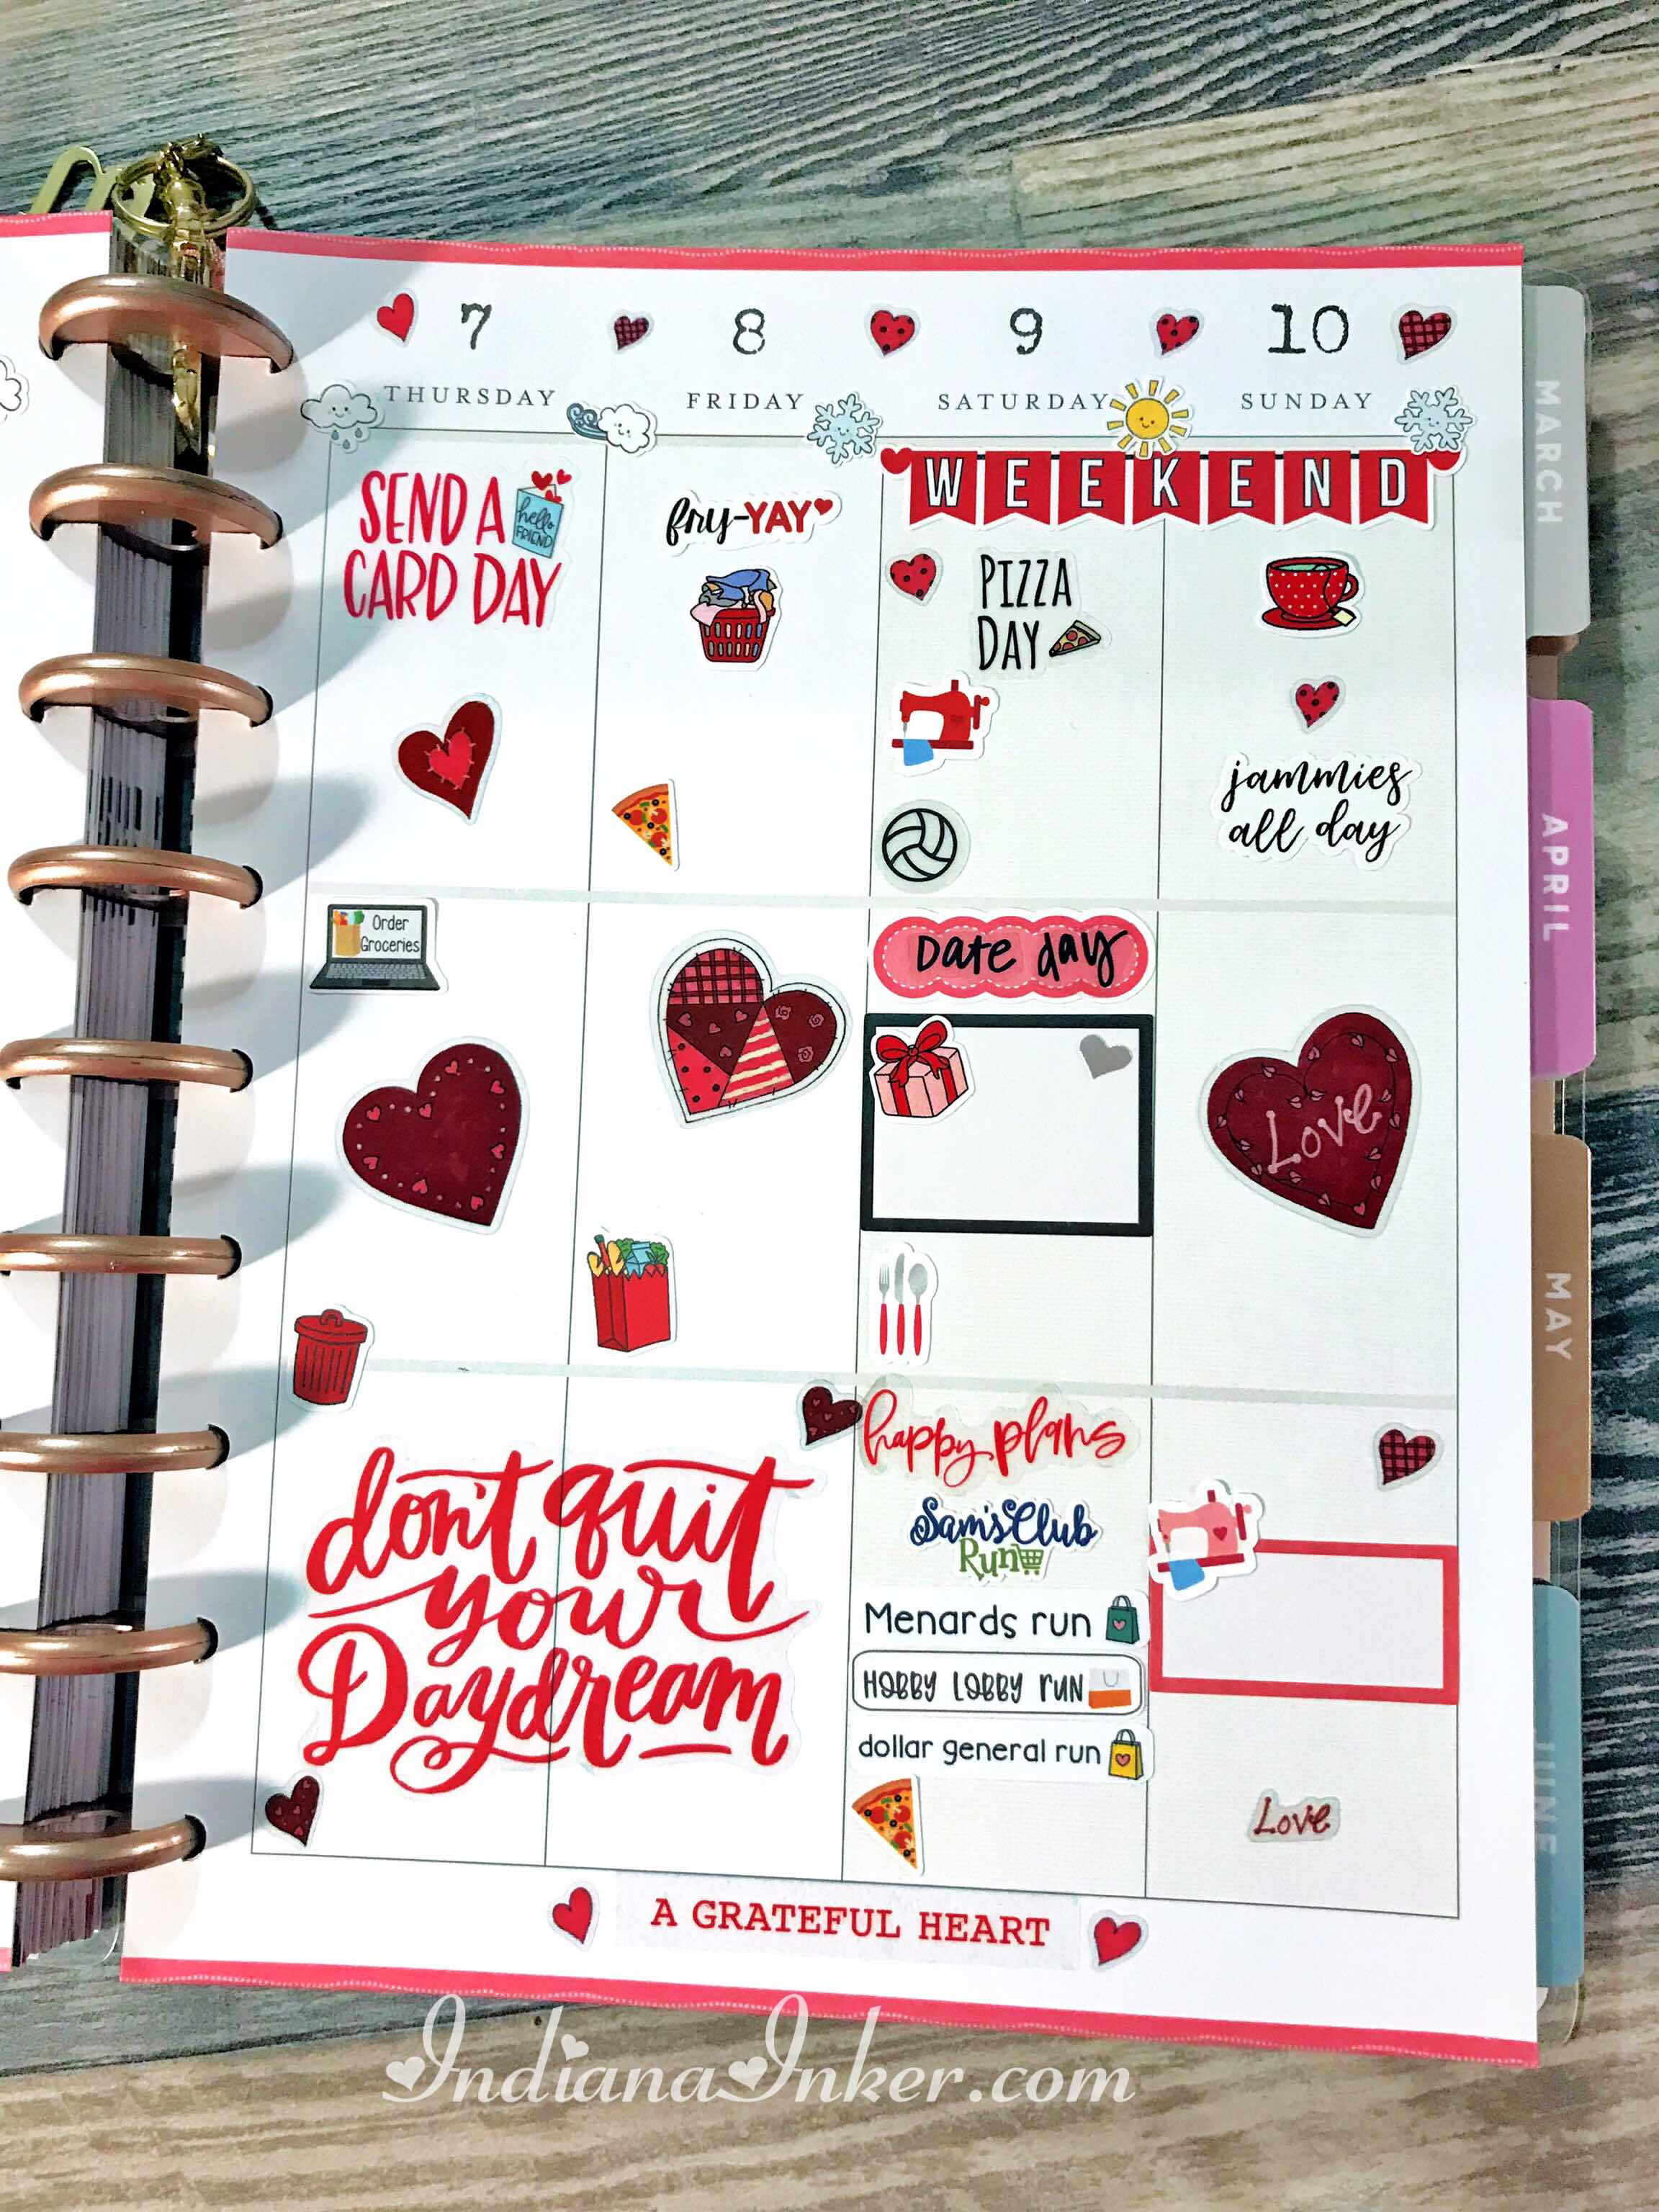 7 8 9 10
THURSDAY FRIDAY SATURDAY SUNDAY
SEND A
hello
FRIEND
CARD DAY
fry-YAY
WEEKEND
PIZZA
DAY
jammies
all day
Order
Groceries
Date day
Love
happy plans
don't quit
your
Daydream
Sam's Club
Run
Menards run
HOBBY LOBBY RUN
dollar general run
Love
A GRATEFUL HEART
MARCH
APRIL
MAY
JUNE
IndianaInker.com